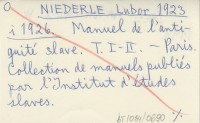 NIEDERLE Lubor 1923
i 1926. Manuel de l'anti-
quité slave. T. I-II. – Paris.
Collection de manuels publiés
par l'Institut d'études
slaves.